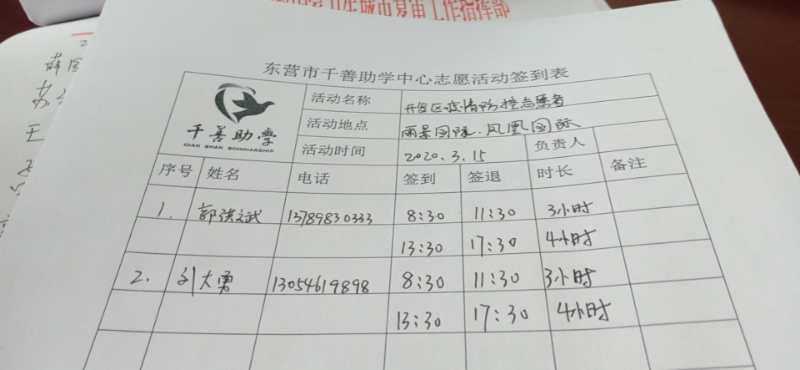 复审工作指挥部
东营市千善助学中心志愿活动签到表
千善助学
QIAN SHAN SCHOLARSHIP
活动名称 开发区疫情防控志愿者
活动地点 雨景国际.凤凰国际
活动时间 2020.3.15 负责人
序号 姓名 电话 签到 签退 时长 备注
1. 郭洪斌 13789830333 8:30 11:30 3小时
13:30 17:30 4小时
2. 刘大勇 13054619898 8:30 11:30 3小时
13:30 17:30 4小时